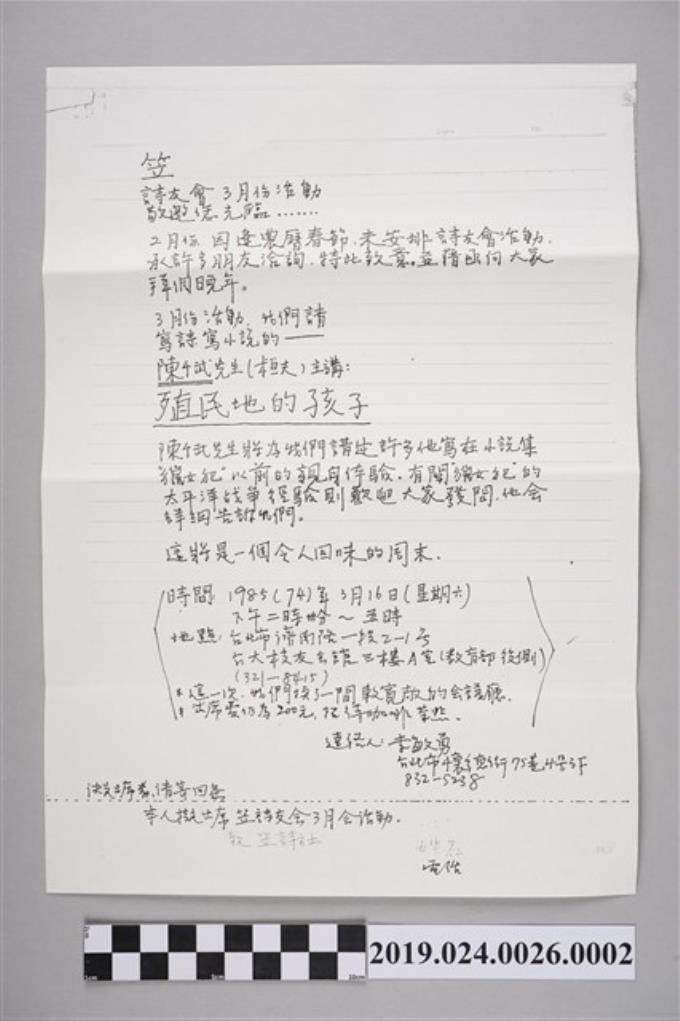 笠
詩友會 3月份活動
敬邀您光臨.......
2月份,因逢農曆春節,未安排詩友會活動,
承許多朋友洽詢,特此致意。並藉函向大家
拜個晚年。
3月份活動,我們請
寫詩寫小說的——
陳千武先生(桓夫)主講:
殖民地的孩子
陳千武先生將為我們講述許多他寫在小說集
"獵女犯"以前的親身体驗。有關"獵女犯"的
太平洋战爭經驗則歡迎大家發問,他会
詳細告訴我們。
這將是一個令人回味的周末.
時間: 1985(74)年3月16日(星期六)
下午二時 ~ 五時
地點: 台北市濟南路一段2-1号
台大校友会館三樓A室(教育部後側)
(321-8415)
*這一次,我們換了一間較寬敞的会議廳.
*出席費仍為200元,
連络人: 李敏勇
台北市 75巷4号3F
832-5238
決定出席者,請寄回函
本人擬出席笠詩友会3月会活動.
致 笠詩社
姓名
電话
2019.024.0026.0002